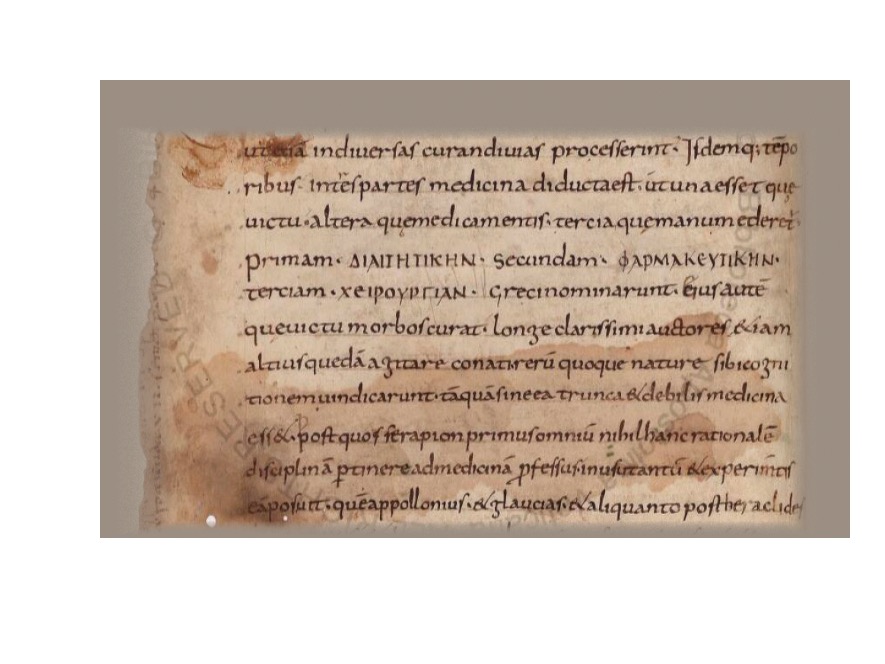 ut etiā indiuersas curandiuias processerint· Jsdemq; tēpo
ribus· intrēspartes medicina diductaest· ut unaesset quę
uictu· altera quęmedicamentis· tercia quęmanumederet̄·
primam· ΔΙΑΙΤΗΤΙΚΗΝ· Secundam· ΦΑΡΜΑΚΕΥΤΙΚΗΝ·
terciam· ΧΕΙΡΟΥΡΓΙΑΝ· Grecinominarunt· Eiusautē
quęuictu morboscurat· longe clarissimi auctores, &iam
altiusquedā agitare conatirerū quoque nature sibicogni
tionem uindicarunt· tāquāsineea trunca&debilismedicina
ess&· postquos serapion primusomniū nihilhancrationalē
disciplinā ptinereadmedicinā pfessus· inusutantū &experim̄tis
eāposuit· quēappollonius· &glaucias· &aliquanto postheraclide